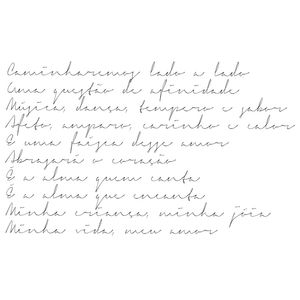 Caminharemos lado a lado
Uma questão de afinidade
Música, dança, tempero e sabor
Afeto, amparo, carinho e calor
E uma faísca desse amor
Abraçará o coração
É a alma quem canta
É a alma que encanta
Minha criança, minha jóia
Minha vida, meu amor